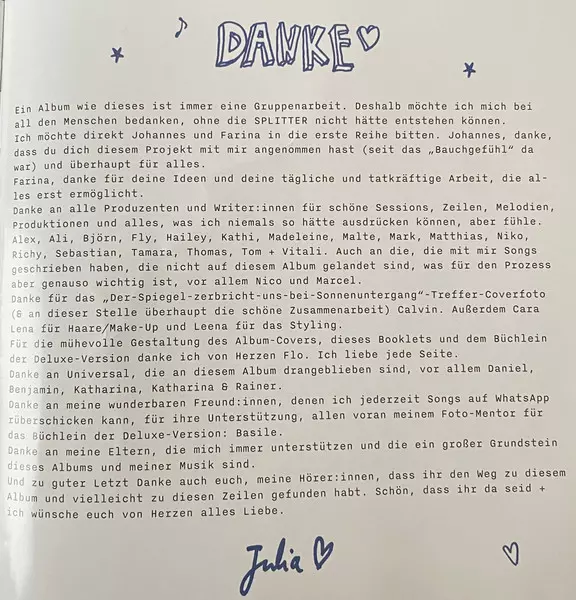 DANKE
Ein Album wie dieses ist immer eine Gruppenarbeit. Deshalb möchte ich mich bei
all den Menschen bedanken, ohne die SPLITTER nicht hätte entstehen können.
Ich möchte direkt Johannes und Farina in die erste Reihe bitten. Johannes, danke,
dass du dich diesem Projekt mit mir angenommen hast (seit das „Bauchgefühl“ da
war) und überhaupt für alles.
Farina, danke für deine Ideen und deine tägliche und tatkräftige Arbeit, die al-
les erst ermöglicht.
Danke an alle Produzenten und Writer:innen für schöne Sessions, Zeilen, Melodien,
Produktionen und alles, was ich niemals so hätte ausdrücken können, aber fühle.
Alex, Ali, Björn, Fly, Hailey, Kathi, Madeleine, Malte, Mark, Matthias, Niko,
Richy, Sebastian, Tamara, Thomas, Tom + Vitali. Auch an die, die mit mir Songs
geschrieben haben, die nicht auf diesem Album gelandet sind, was für den Prozess
aber genauso wichtig ist, vor allem Nico und Marcel.
Danke für das „Der-Spiegel-zerbricht-uns-bei-Sonnenuntergang“-Treffer-Coverfoto
(& an dieser Stelle überhaupt die schöne Zusammenarbeit) Calvin. Außerdem Cara
Lena für Haare/Make-Up und Leena für das Styling.
Für die mühevolle Gestaltung des Album-Covers, dieses Booklets und dem Büchlein
der Deluxe-Version danke ich von Herzen Flo. Ich liebe jede Seite.
Danke an Universal, die an diesem Album drangeblieben sind, vor allem Daniel,
Benjamin, Katharina, Katharina & Rainer.
Danke an meine wunderbaren Freund:innen, denen ich jederzeit Songs auf WhatsApp
rüberschicken kann, für ihre Unterstützung, allen voran meinem Foto-Mentor für
das Büchlein der Deluxe-Version: Basile.
Danke an meine Eltern, die mich immer unterstützen und die ein großer Grundstein
dieses Albums und meiner Musik sind.
Und zu guter Letzt Danke auch euch, meine Hörer:innen, dass ihr den Weg zu diesem
Album und vielleicht zu diesen Zeilen gefunden habt. Schön, dass ihr da seid +
ich wünsche euch von Herzen alles Liebe.
Julia